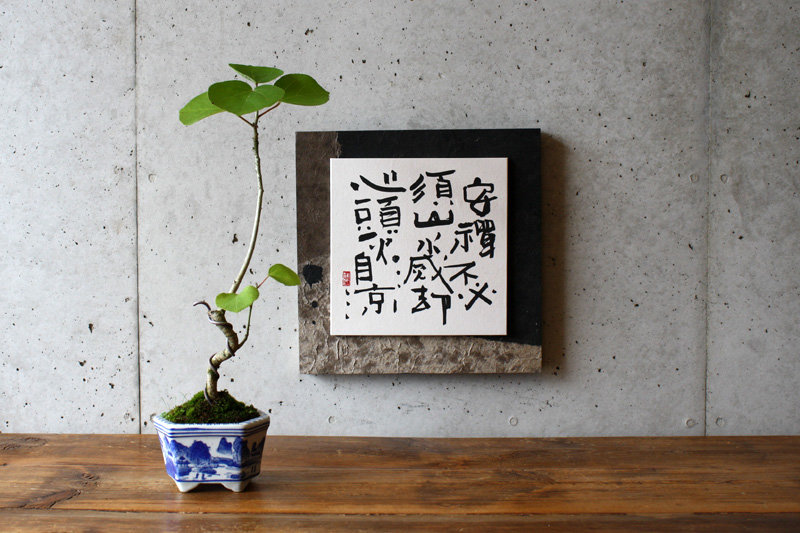 安禪不必
須山水滅却
心頭火自涼